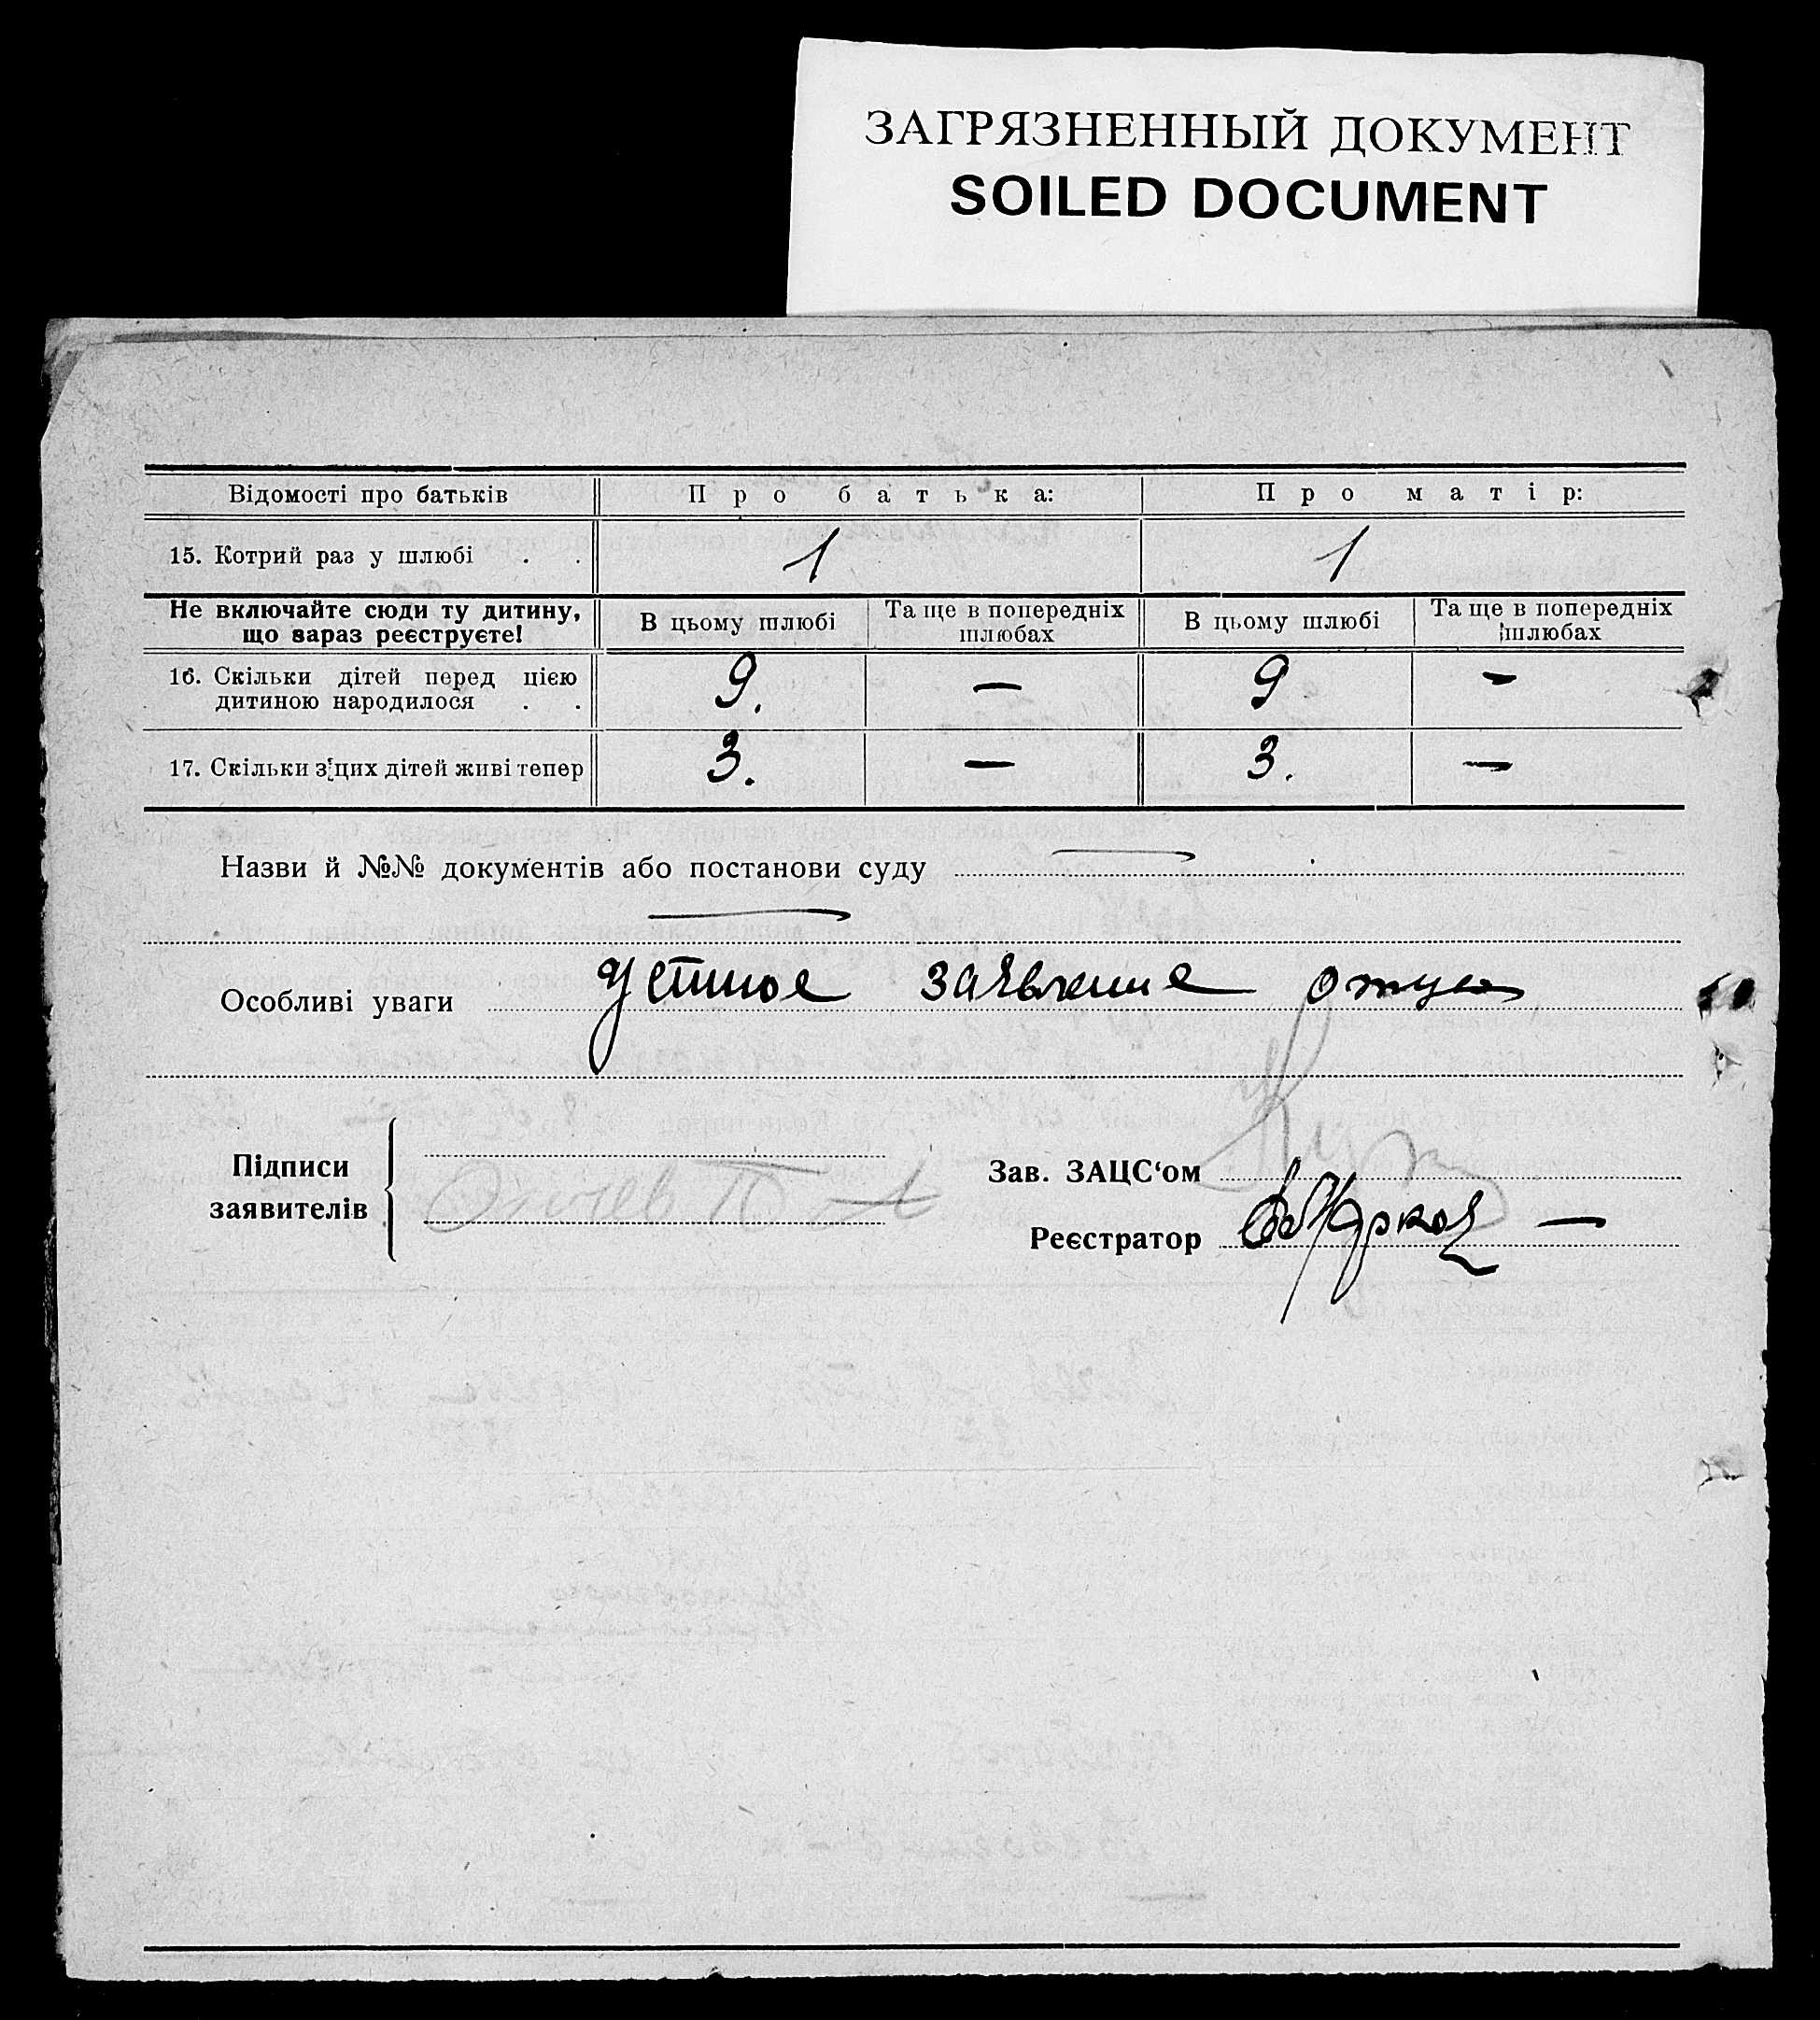 ЗАГРЯЗНЕННЫЙ ДОКУМЕНТ
SOILED DOCUMENT
Відомості про батьків Про батька: Про матір:
15. Котрий раз у шлюбі . . 1 1
Не включайте сюди ту дитину, що зараз реєструєте! В цьому шлюбі Та ще в попередніх шлюбах В цьому шлюбі Та ще в попередніх шлюбах
16. Скільки дітей перед цією дитиною народилося . . 9. — 9 —
17. Скільки з цих дітей живі тепер 3. — 3. —
Назви й №№ документів або постанови суду —
—
Особливі уваги Устное заявление отца
Підписи заявителів
Зав. ЗАЦС‘ом
Реєстратор